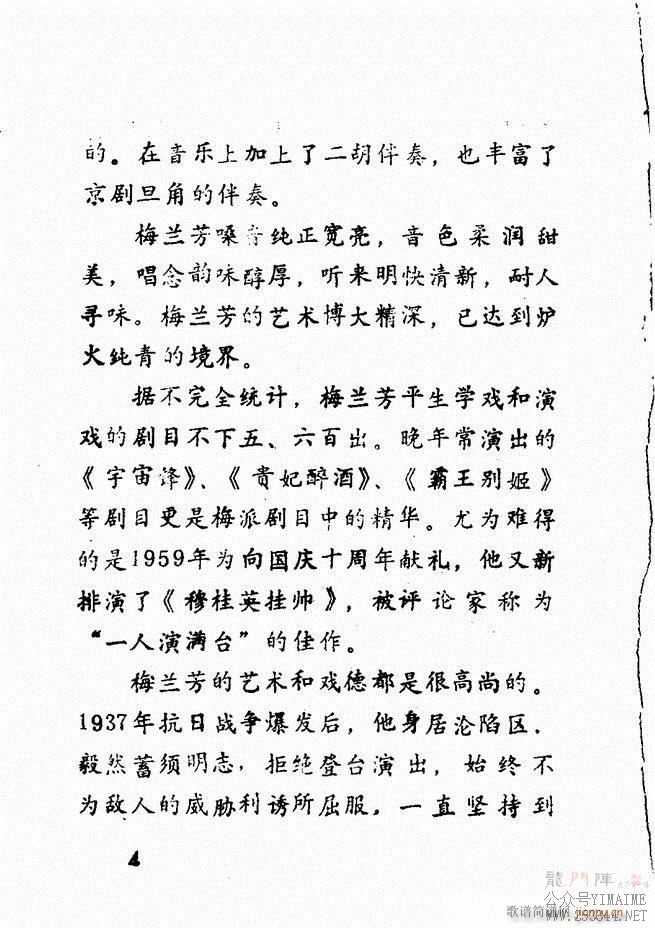 的。在音乐上加上了二胡伴奏，也丰富了
京剧旦角的伴奏。
梅兰芳嗓音纯正宽亮，音色柔润甜
美，唱念韵味醇厚，听来明快清新，耐人
寻味。梅兰芳的艺术博大精深，已达到炉
火纯青的境界。
据不完全统计，梅兰芳平生学戏和演
戏的剧目不下五、六百出。晚年常演出的
《宇宙锋》、《贵妃醉酒》、《霸王别姬》
等剧目更是梅派剧目中的精华。尤为难得
的是1959年为向国庆十周年献礼，他又新
排演了《穆桂英挂帅》，被评论家称为
“一人演满台”的佳作。
梅兰芳的艺术和戏德都是很高尚的。
1937年抗日战争爆发后，他身居沦陷区，
毅然蓄须明志，拒绝登台演出，始终不
为敌人的威胁利诱所屈服，一直坚持到
4
龍門陣
公众号YIMAIME
歌谱简谱网